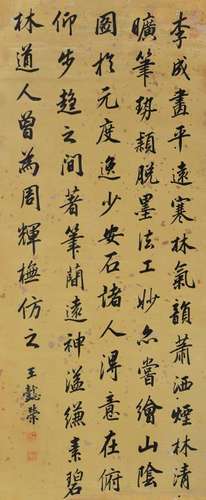 李成畫平遠寒林氣韻蕭洒煙林清
曠筆勢穎脫墨法工妙亦嘗繪山陰
圖於元度逸少安石諸人得意在俯
仰步趨之間著筆蕳遠神溢縑素碧
林道人曾為周輝橅仿之
王懿榮